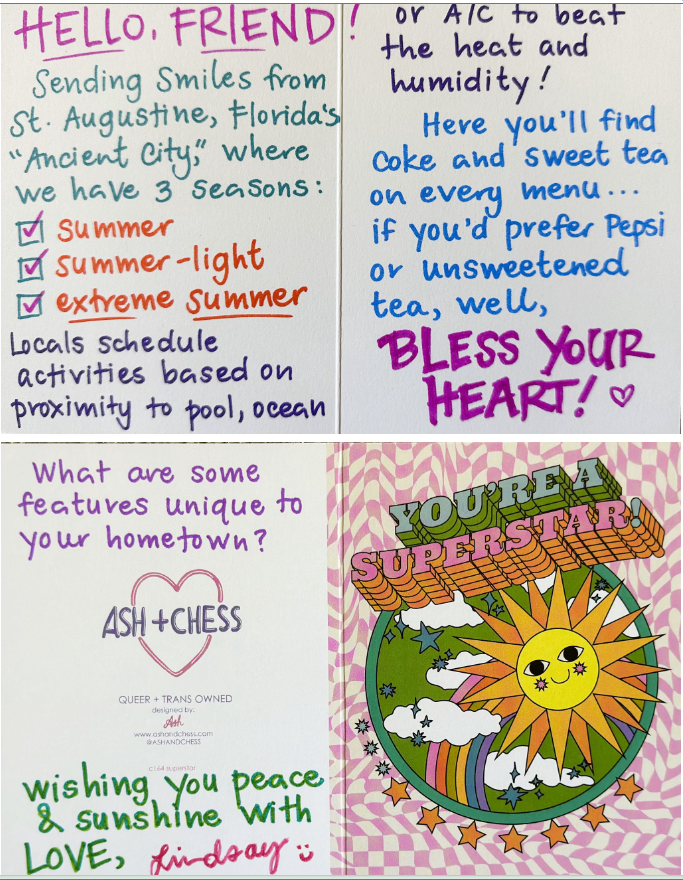 HELLO, FRIEND!
Sending Smiles from
St. Augustine, Florida's
"Ancient City," where
we have 3 seasons:
summer
summer-light
extreme summer
Locals schedule
activities based on
proximity to pool, ocean
or A/C to beat
the heat and
humidity!
Here you'll find
Coke and sweet tea
on every menu...
if you'd prefer Pepsi
or unsweetened
tea, well,
BLESS YOUR
HEART!
What are some
features unique to
your hometown?
ASH + CHESS
QUEER + TRANS OWNED
designed by:
Ash
www.ashandchess.com
@ASHANDCHESS
c164 superstar
wishing you peace
& sunshine with
LOVE, Lindsay
YOU'RE A
SUPERSTAR!